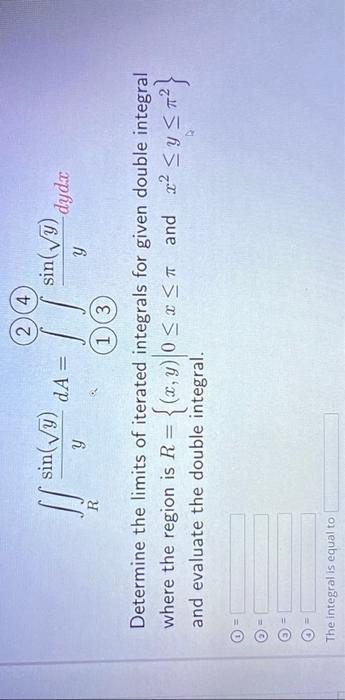 ② ④
∬_R sin(√y)/y dA = ∫∫ sin(√y)/y dydx
① ③
Determine the limits of iterated integrals for given double integral
where the region is R = {(x, y)|0 ≤ x ≤ π and x² ≤ y ≤ π²}
and evaluate the double integral.
① =
② =
③ =
④ =
The integral is equal to